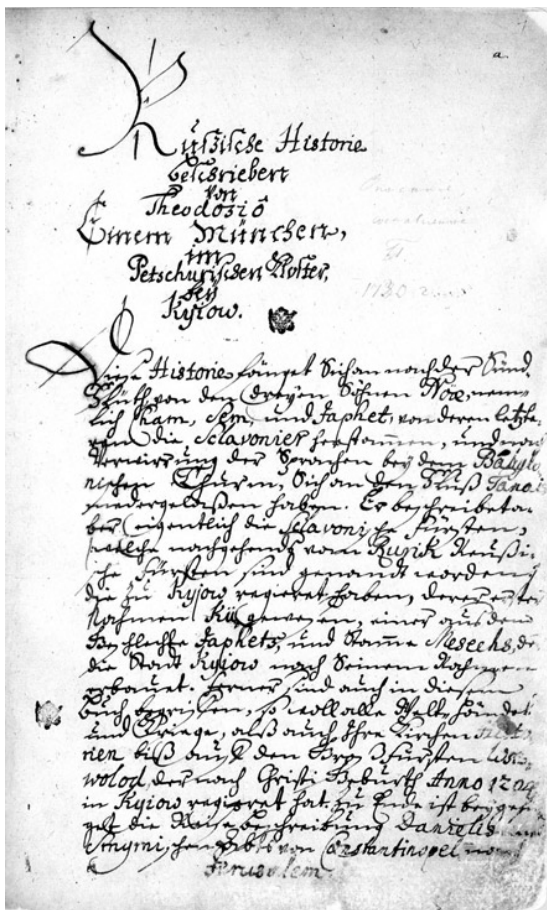 a.
Rußische Historie
beschrieben
von
Theodosiô
Einem München,
im
Petschurischen Kloster,
bey
Kyiow.
Diese Historie fänget Sich an nach der Sünd
Fluth von den dreyen Söhnen Noæ, nem
lich Cham, Sem, und Japhet, von deren letzte
ren die Sclavonier herstammen, und nach
Verwirrung der Sprachen bey dem Babylo
nischen Thurm, Sich an den Fluß Tanais
niedergelaßen haben. Er beschreibet a
ber eigentlich die Sclavonische Fürsten,
welche nachgehends vom Rurik Reußi
sche Fürsten sind genandt worden,
die zu Kyiow regieret haben, derer erster
Nahmen Kÿ gewesen, einer aus dem
Geschlechte Japhets, und Stamme Mesechs, der
die Stadt Kyiow nach Seinem Nahmen
erbauet. Ferner sind auch in diesem
Buch begriffen, so woll alle Welt-Händel
und Kriege, alß auch Ihre Kirchen Histo
rien biß auf den Groß Fürsten
wolod, der nach Christi Geburth Anno 1204
in Kyiow regieret hat. zu Ende ist beygefü
get die Reise beschreibung Danielis
Abts von Constantinopel nach
Jerusalem.